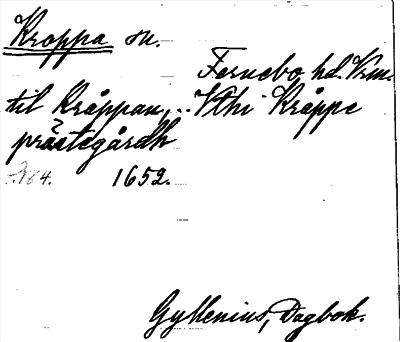 Kroppa sn.
Fernebo hd. Vrm.
til Kråppan, .. Vthi Kråppe
prästegårdh
1652.
Gyllenius, Dagbok.